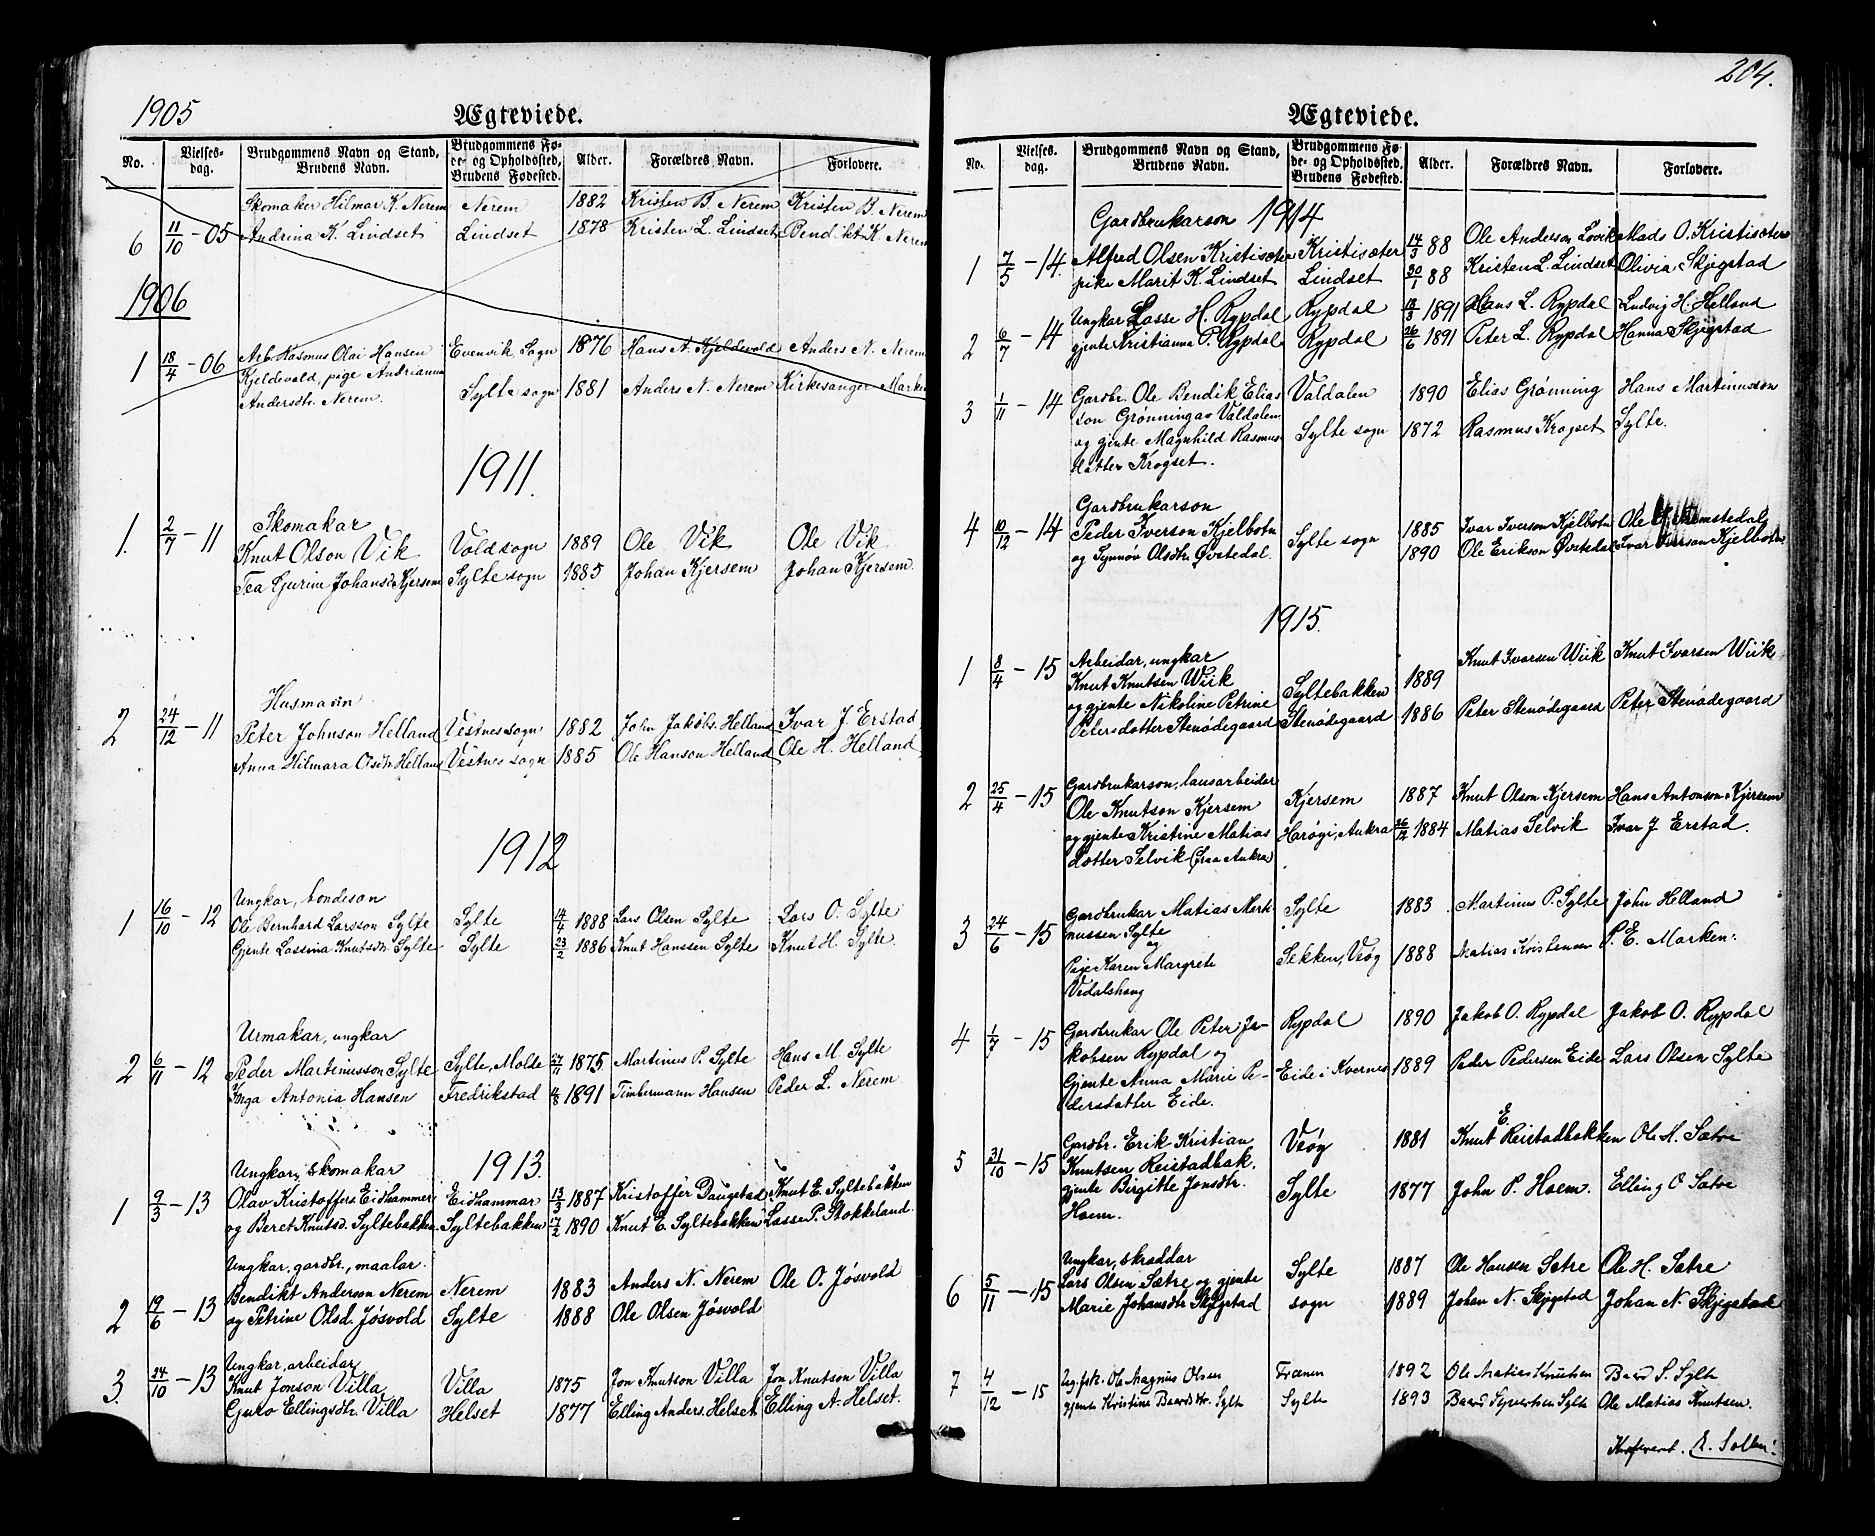 1905
Ægteviede.
No.
Vielses-
dag.
Brudgommens Navn og Stand,
Brudens Navn.
Brudgommens Fø-
de- og Opholdssted,
Brudens Fødested.
Alder.
Forældres Navn.
Forlovere.
Skomaker Hilmar K. Nerem Nerem 1882 Kristen B. Nerem Kristen B. Nerem
6 11/10 - 05 Andrina K. Lindset Lindset 1878 Kristen L. Lindset Bendikt K. Nerem
1906
1 18/4 - 06 Arb. Rasmus Olai Hansen Sogn 1876 Hans A. Kjeldevold Anders N. Nerem
Kjeldevold, pige Andrianna Sylte sogn 1881 Anders N. Nerem Kirkesanger Marken
Andersdtr. Nerem.
1911.
Skomakar
1. 2/7 - 11 Knut Olson Vik Vold sogn 1889 Ole Vik Ole Vik
Tea Gurine Johansd. Kjersem Sylte sogn 1885 Johan Kjersem Johan Kjersem
Husmann
2 24/12 - 11 Peter Johnson Helland Vestnes sogn 1882 John Jakobs. Helland Ivar J. Erstad
Anna Hilmara Olsdtr Helland Vestnes sogn 1885 Ole Hanson Helland Ole H. Helland
1912
Ungkar, bondeson
1 16/10 - 12 Ole Bernhard Larsson Sylte Sylte 14/4 1888 Lars Olsen Sylte Lars O. Sylte
Gjente Lassina Knutsdtr. Sylte Sylte 23/2 1886 Knut Hanssen Sylte Knut H. Sylte
Urmakar, ungkar
2 6/11 - 12 Peder Martinusson Sylte Sylte, Molde 27/11 1875 Martinus P. Sylte Hans M. Sylte
Inga Antonia Hansen Fredrikstad 1891 Timbermann Hansen Peder L. Nerem
1913.
Ungkar, skomakar
1 9/3 - 13 Olav Kristoffers. Eidhammer Eidhammar 13/3 1887 Kristoffer Daugstad Knut E. Syltebakken
og Beret Knutsd. Syltebakken Syltebakken 1890 Knut E. Syltebakken Lasse P. Stokkeland
Ungkar, gardbr., maalar
2 19/6 - 13 Bendikt Anderson Nerem Nerem 1883 Anders N. Nerem Ole O. Jøsvold
og Petrine Olsd. Jøsvold Sylte 1888 Ole Olsen Jøsvold
Ungkar, arbeidar
3. 24/10 - 13 Knut Jonson Villa Villa 1875 Jon Knutson Villa Jon Knutson Villa
Guro Ellingsdtr. Villa Helset 1877 Elling Anders. Helset Elling A. Helset.
204.
Ægteviede.
No.
Vielses-
dag.
Brudgommens Navn og Stand,
Brudens Navn.
Brudgommens Fø-
de- og Opholdssted,
Brudens Fødested.
Alder.
Forældres Navn.
Forlovere.
1914
Gardbrukarson
1 7/5 - 14. Alfred Olsen Kristisæter Kristisæter 14/3 88 Ole Anderson Løvik Mads O. Kristisæter
pike Marit K. Lindset Lindset 30/1 88 Kristen L. Lindset Olivia Skjegstad
2 6/7 - 14 Ungkar Lasse H. Rypdal Rypdal 1891 Hans L. Rypdal Ludvig H. Helland
gjente Kristianna P. Rypdal Rypdal 26/6 1891 Peter L. Rypdal Hanna Skjegstad
3 1/11 - 14 Gardbr. Ole Bendik Elias Valdalen 1890 Elias Grønning Hans Martinusson
son Grønning av Valdalen
og gjente Magnhild Rasmus Sylte sogn 1872 Rasmus Krogset Sylte.
datter Krogset.
Gardbrukarson
4 10/12 - 14 Peder Iverson Kjelbotn Sylte sogn 1885 Ivar Iverson Kjelbotn Ole
og Synnøv Olsdtr. Øvstedal. 1890 Ole Erikson Øvstedal Ivar Iverson Kjelbotn
1915.
1 8/4 - 15 Arbeidar, ungkar
Knut Knutsen Wiik Syltebakken 1889 Knut Ivarsen Wiik Knut Ivarsen Wiik
og gjente Nikoline Petrine
Petersdotter Stenødegaard Stenødegaard 1886 Peter Stenødegaard Peter Stenødegaard
2 25/4 - 15 Gardbrukarson, lausarbeider
Ole Knutson Kjersem Kjersem 1887 Knut Olson Kjersem Hans Antonson Kjersem
og gjente Kristine Matias Harøgi, Aukra 26/12 1884 Matias Selvik Ivar J. Erstad.
dotter Selvik (fraa Aukra)
3 24/6 - 15 Gardbrukar Matias Marti- Sylte 1883 Martinus P. Sylte John Helland
nussen Sylte
og
Pige Karen Margrete Sekken, Veøg 1888 Matias Kristensen P. E. Marken.
Vedalshaug
4 1/7 - 15 Gardbrukar Ole Peter Ja- Rypdal 1890 Jakob O. Rypdal Jakob O. Rypdal
kobsen Rypdal og
Gjente Anna Marie Pe- Eide i Kvernes 1889 Peder Pedersen Eide Lars Olsen Sylte
dersdatter Eide.
5 31/10 - 15 Gardbr. Erik Kristian Veøg 1881 Knut E. Reistadbakken Ole H. Sætre
Knutsen Reistadbak.
gjente Birgitte Jonsdtr. Sylte 1877 John P. Hoem. Elling O. Sætre
Hoem.
Ungkar, skræddar
6 5/11 - 15 Lars Olsen Sætre og gjente Sylte 1887 Ole Hansen Sætre Ole H. Sætre
Marie Johansdtr Skjegstad sogn 1889 Johan N. Skjegstad Johan N. Skjegstad
7 4/12 - 15 Ug. fsk. Ole Magnus Olsen Frænen 1892 Ole Matias Knutsen Baard S. Sylte
gjente Kristine Baardsdtr. Sylte Sylte 1893 Baard Syvertsen Sylte Ole Matias Knutsen.